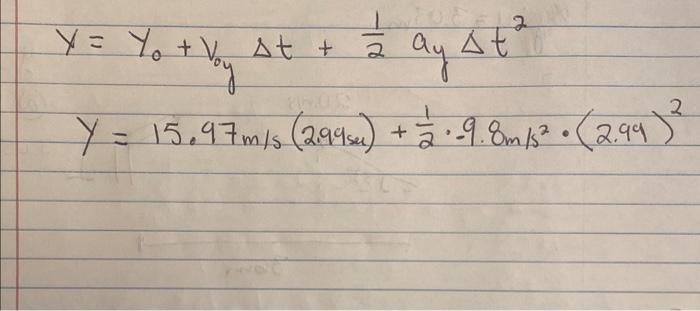 Y = Y₀ + V₀y Δt + 1/2 ay Δt²
Y = 15.97m/s (2.99sec) + 1/2 · -9.8m/s² · (2.99)²